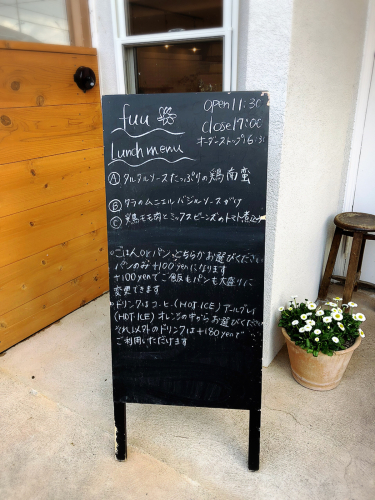 fuu
open 11:30
close 17:00
オーダーストップ 16:30
Lunch menu
Ⓐ タルタルソースたっぷりの鶏南蛮
Ⓑ タラのムニエル バジルソースがけ
Ⓒ 鶏モモ肉とミックスビーンズのトマト煮込み
・ごはんorパンどちらかお選びください
パンのみ+100yenになります
+100yenでご飯もパンも大盛りに
変更できます
・ドリンクはコーヒー(HOT ICE) アールグレイ
(HOT ICE) オレンジの中からお選びください
それ以外のドリンクは+180yenで
ご利用いただけます